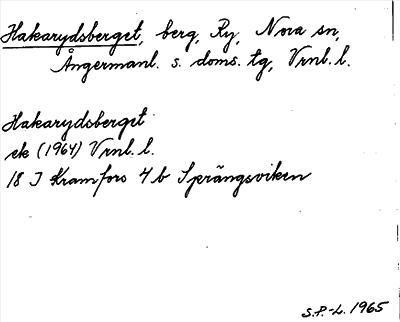 Hakarydsberget, berg, Ry, Nora sn,
Ångermanl. s. doms. tg, Vrnl. l.
Hakarydsberget
ek (1964) Vrnl. l.
18 J Kramfors 4 b Sprängsviken
S.P.-L. 1965